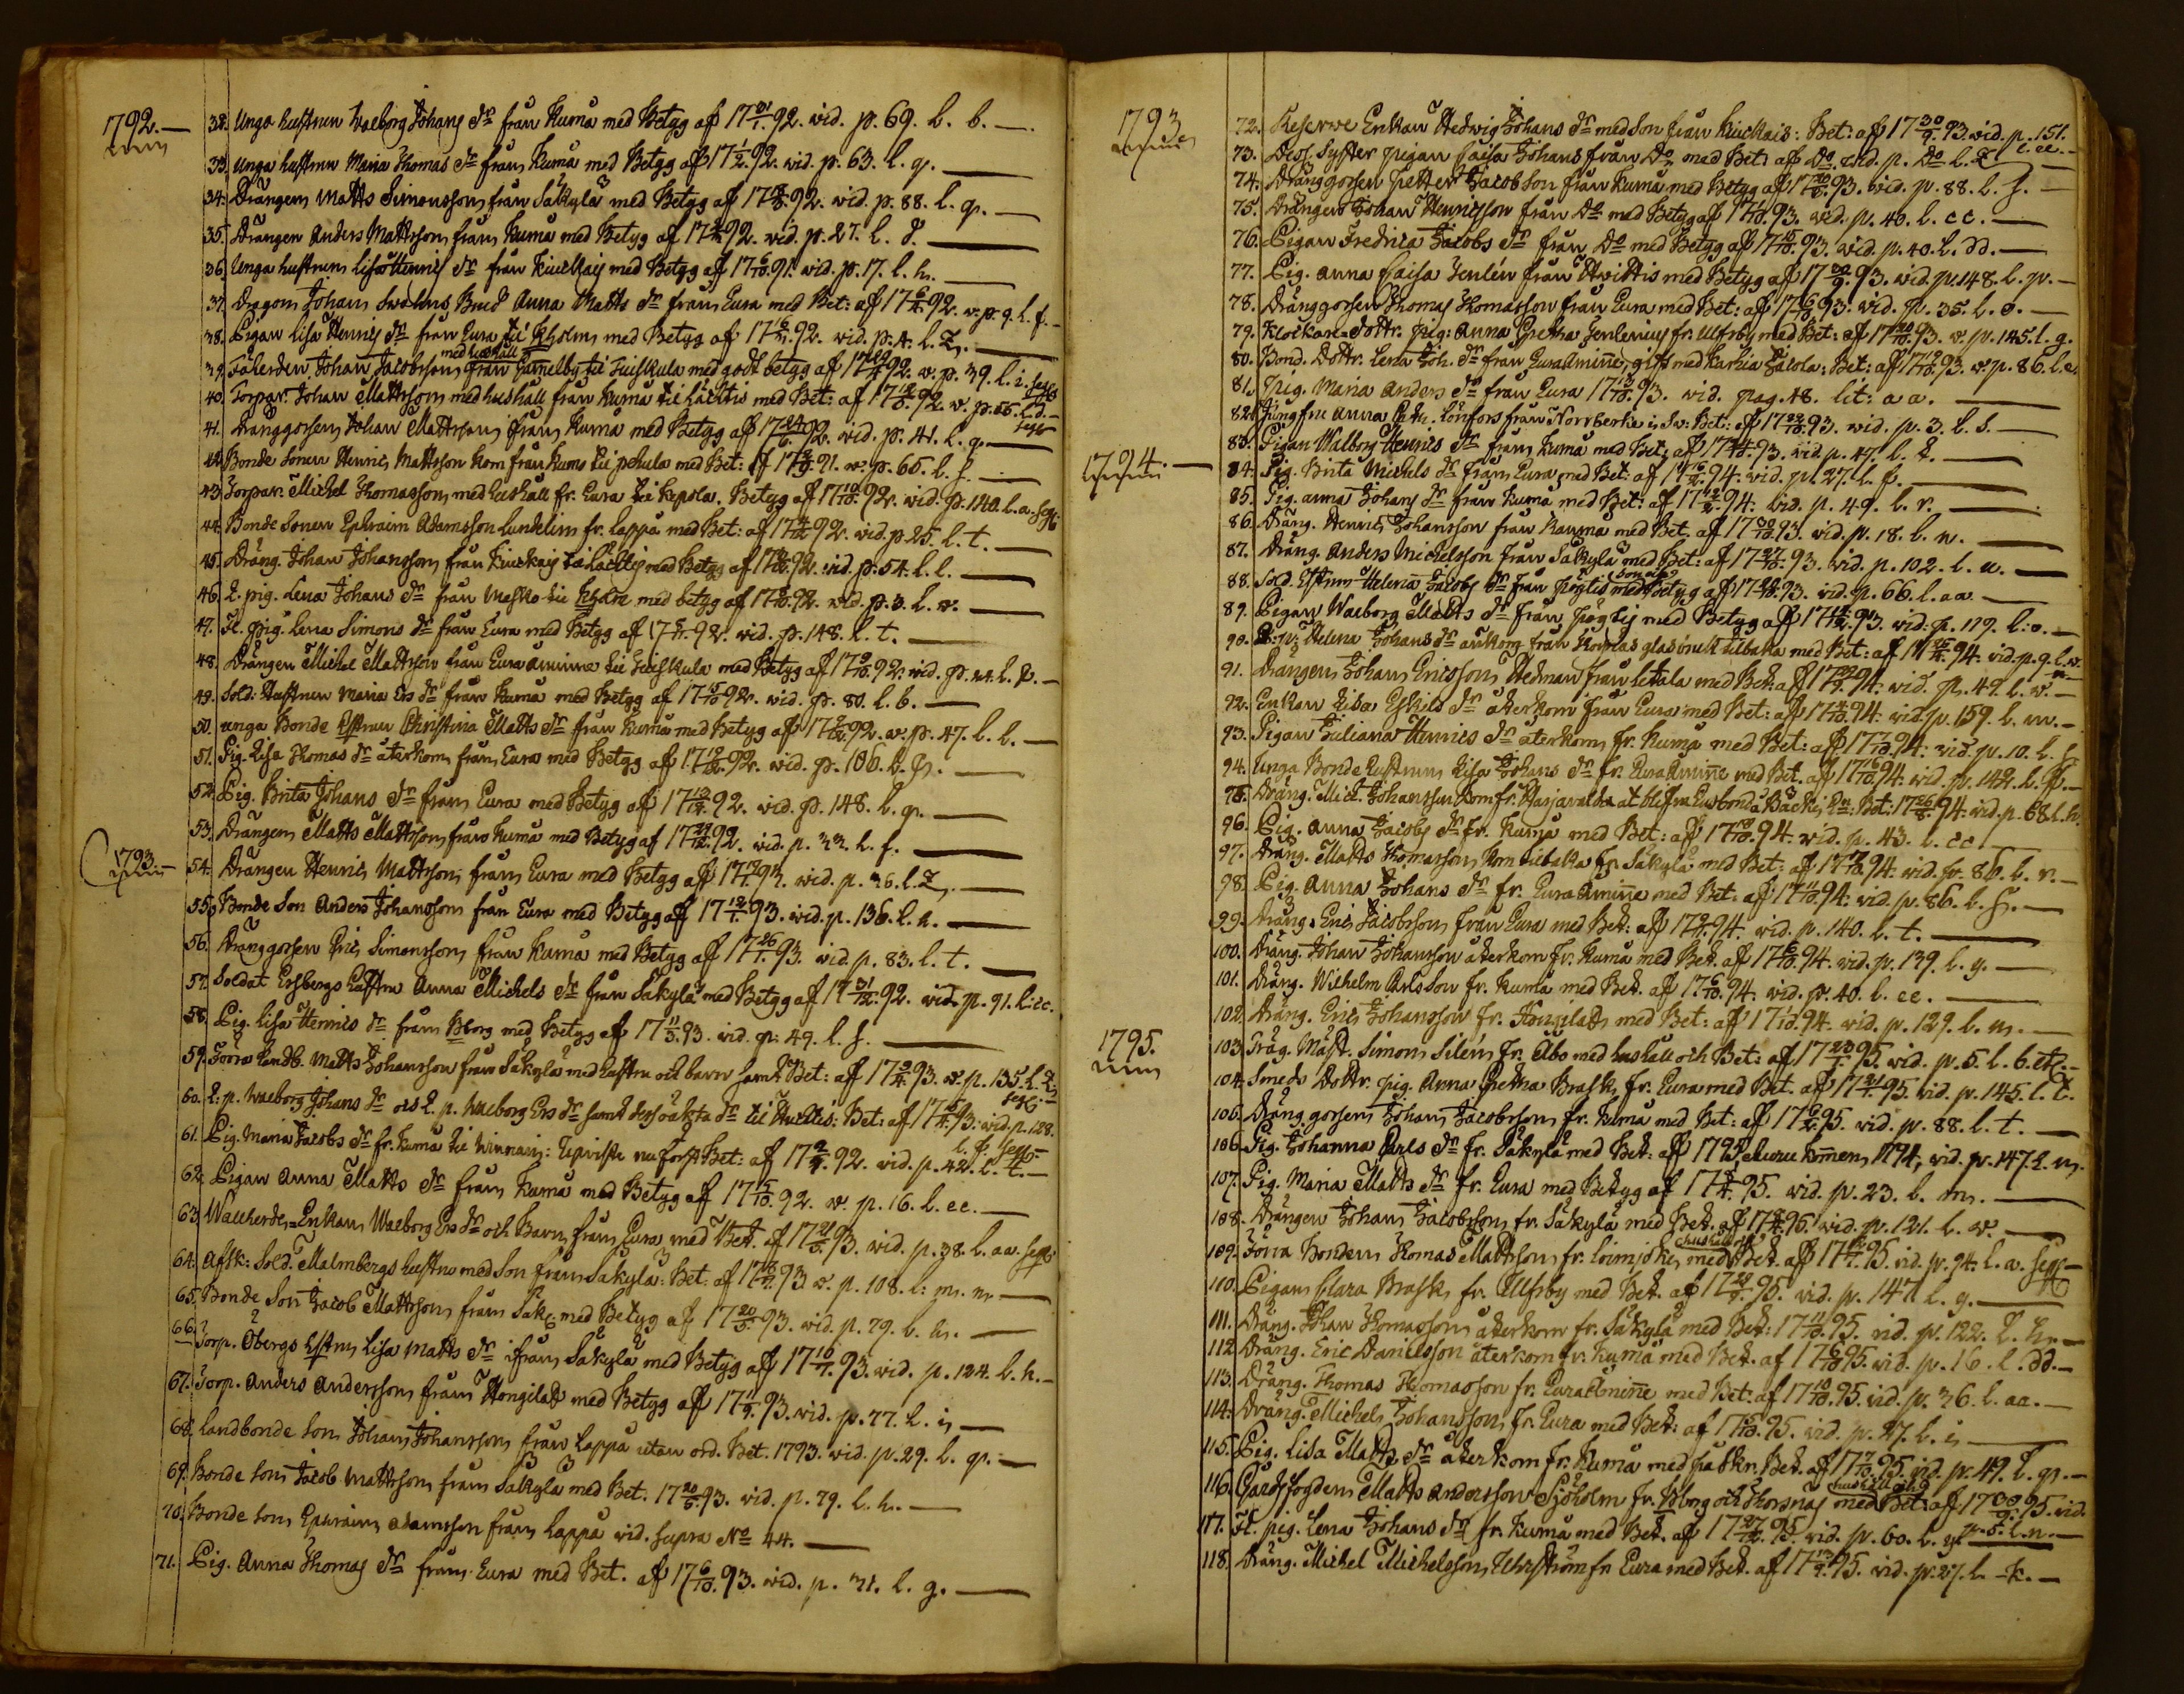 1792.
32. Unga hustrun Walborg Johans dr från Kumå med Betyg af 17 31/1. 92. vid. p. 69. l. b.
33. Unga hustrun Maria Thomas dr från Kumå med Betyg af 17 1/2. 92. vid. p. 63. l. q.
34. Drängen Matts Simonsson från Säkylä med Betyg af 92. vid. p. 88. l. q.
35. Drängen Anders Mattsson från Kumå med Betyg af 92. vid. p. 27. l. d.
36. Unga hustrun Lisa Henrics dr från Kiuckais med Betyg af 91. vid. p. 17. l. h.
37. Dragon Johan Brud Anna Matts dr från Eura med Bet: af 92. v. p. 9. l. f.
38. Pigan Lisa Henrics dr från Eura til med Betyg af 92. vid. p. 4. l. Z.
39. Johan Jacobsson med hushåll från til Huiskula med godt betyg af 92. v. p. 39. l. i. seqq
40. Torpar. Johan Mattsson med hushåll från Kumå til med Bet: af 92. v. p. 56. l. d. seqq
41. Dränggossen Johan Mattsson från Kumå med Betyg af 17 24/6. 92. vid. p. 41. l. q.
42. Bonde sonen Henric Mattsson kom från Kumo til med Bet: af 91. v. p. 65. l. f.
43. Torpar. Michel Thomasson med hushåll fr. Eura til Kepola. Betyg af 17 10/10. 92. vid. p. 140. l. a. seqq
44. Bonde sonen Ephraim Adamsson Lundelin fr. Lappå med Bet: af 92. vid. p. 25. l. t.
45. Dräng. Johan Johansson från Kiuckais med Betyg af 92. vid. p. 54. l. l.
46. pig. Lena Johans dr från til med betyg af 92. vid. p. 3. l. v.
47. Fl. pig. Lena Simons dr från Eura med Betyg af 92. vid. p. 148. l. t.
48. Drängen Michel Mattsson från Eura åminne til Huiskula med Betyg af 92. vid. p. l. p.
49. Sold: Hustrun Maria Ers dr från Kumå med Betyg af 17 15/10 92. vid. p. 80. l. b.
50. unga Bonde Hstrun Christina Matts dr från Kumå med Betyg af 92. v. p. 47. l. b.
51. Pig. Lisa Thomas dr återkom från Eura med Betyg af 92. vid. p. 106. l. p.
52. Pig. Brita Johans dr från Eura med Betyg af 92. vid. p. 148. l. q.
53. Drängen Matts Mattsson från Kumå med Betyg af 92. vid. p. 33. l. f.
1793.
54. Drängen Henric Mattsson från Eura med Betyg af 93. vid. p. 36. l. Z.
55. Bonde Son Anders Johansson från Eura med Betyg af 17 12/1. 93. vid. p. 136. l. n.
56. Dränggossen Eric Simonsson från Kumå med Betyg af 17 26/1. 93. vid. p. 83. l. t.
57. Soldat Ersbergs Hustru Anna Michels dr från Säkylä med Betyg af 17 31/12. 92. vid. p. 91. l: cc.
58. Pig. Lisa Henrics dr från Bborg med Betyg af 17 11/3. 93. vid. p. 49. l. f.
59. Förra Landb. Matts Johansson från Säkylä med hustru och barn samt Bet: af 93. v. p. 135. l. Z. seqq
60. L: p. Walborg Johans dr och L. p. Walborg Ers dr samt oäkta dr til Bet: af 93: vid. p. 128. l. p. seqq
61. Pig. Maria Jacobs dr fr. Kumå til nu först Bet: af 92. vid. p. 42. l. t.
62. Pigan Anna Matts dr från Kumå med Betyg af 17 15/10 92. v. p. 16. l. ee.
63. Wallherde-Enkan Walborg Ers dr och Barn från Eura med Bet. af 17 21/5. 93. vid. p. 38. l. aa. seqq
64. Afsk: Sold. Malmbergs hustru med Son från Säkylä: Bet: af 93 v. p. 108. l: m. n.
65. Bonde Son Jacob Mattsson från Säk. med Betyg af 17 20/5. 93. vid. p. 79. l. h.
66. Torp. Öbergs Hstru Lisa Matts dr ifrån Säkylä med Betyg af 17 10/7. 93. vid. p. 124. l. h.
67. Torp. Anders Andersson från Hongilax med Betyg af 17 1/9. 93. vid. p. 77. l. i.
68. Landbonde son Johan Johansson från Lappå utan ord. Bet. 1793. vid. p. 29. l. q.
69. Bonde son Jacob Mattsson från Säkylä med Bet: 17 20/5. 93. vid. p. 79. l. h.
70. Bonde son Ephraim Adamsson från Lappå vid. supra No 44.
71. Pig. Anna Thomas dr från Eura med Bet. af 17 6/10. 93. vid. p. 31. l. g.
1793.
72. Reserve Enkan Hedwig Johans dr med Son från Kiuckais: Bet: af 17 30/9. 93 vid. p. 151. l. ee.
73. Dess Syster pigan Caisa Johans från Do med Bet: af Do vid. p. Do l. Z
74. Dränggossen Petter Jacobsson från Kumå med Betyg af 93. vid. p. 88. l. f.
75. Drängen Johan Henricsson från Do med Betyg af 93. vid. p. 40. l. cc.
76. Pigan Fredrica Jacobs dr från Do med Betyg af 17 15/10. 93. vid. p. 40. l. dd.
77. Pig. Anna Caisa Jenlén från Hvittis med Betyg af 17 30/9. 93. vid. p. 148. l. p.
78. Dränggossen Thomas Thomasson från Eura med Bet: af 17 6/10 93. vid. p. 35. l. o.
79. Klockare-Dottr. pig: Anna Gretha Jenlenius fr. Ulfsby med Bet: af 17 20/10. 93. v. p. 145. l. g.
80. Bond. Dottr. Lena Joh. dr från Euraåminne, gift med Bet: af 93. v. p. 86. l. e.
81. Pig. Maria Anders dr från Eura 93. vid. pag. 48. lit: a a.
82. Jungfru Anna Cath. Lönfors från Norrberke i Sv: Bet: af 17 22/10. 93. vid. p. 3. l. s.
83. Pigan Walborg Henrics dr från Kumå med Bet. af 93. vid. p. 47. l. k.
1794.
84. Pig. Brita Michels dr från Eura med Bet: af 94. vid. p. 27. l. p.
85. Pig. Anna Johans dr från Kumå med Bet: af 17 12/2. 94. vid. p. 49. l. r.
86. Dräng. Henric Johansson från Raumå med Bet. af 93. vid. p. 18. l. n.
87. Dräng. Anders Michelsson från Säkylä med Bet: af 17 27/10. 93. vid. p. 102. l. u.
88. Sold. Hstrun Helena Jacobs dr från med Betyg af 93. vid. p. 66. l. aa
89. Pigan Walborg Matts dr från med Betyg af 93. vid. p. 119. l: o.
90. Helena Johans dr ankom från glasbruk tilbaka med Bet: af 94. vid. p. 9. l. v.
91. Drängen Johan Ericsson Hedman från Letala med Bet. af 94. vid. p. 49. l. v.
92. Enkan Lisa Eskils dr återkom från Eura med Bet: af 94. vid. p. 159. l. m.
93. Pigan Juliana Henrics dr återkom fr. Kumå med Bet: af 94. vid. p. 10. l. f.
94. Unga Bonde hustrun Lisa Johans dr fr. Euraåminne med Bet. af 17 16/10 94. vid. p. 142. l. p.
95. Dräng. Mich. Johansson kom fr. Harjavalda at blifva husbonde å Bet: 17 26/8. 94. vid. p. 68. l. h.
96. Pig. Anna Jacobs dr fr. Kumå med Bet: af 94. vid. p. 43. l. cc
97. Dräng. Matts Thomasson kom tilbaka fr. Säkylä med Bet: af 94. vid. p. 86. l. r.
98. Pig. Anna Johans dr fr. Euraåminne med Bet. af 17 11/10. 94. vid. p. 86. l. f.
99. Dräng. Eric Jacobsson från Eura med Bet: af 94. vid. p. 140. l. t.
100. Dräng. Johan Johansson återkom fr. Kumå med Bet. af 17 6/10. 94. vid. p. 139. l. y.
101. Dräng. Wilhelm Carlsson fr. Kumå med Bet. af 17 6/10. 94. vid. p. 40. l. ee.
102. Dräng. Eric Johansson fr. Hongilax med Bet: af 17 1/10. 94. vid. p. 129. l. m.
1795.
103. Träg. Mäst. Simon Silén fr. Åbo med hushåll och Bet: af 17 23/1. 95. vid. p. 5. l. b. etc.
104. Smeds Dottr. pig. Anna Gretha Brask, fr. Eura med Bet. af 95. vid. p. 145. l. t.
105. Dränggossen Johan Jacobsson fr. Kumå med Bet: af 95. vid. p. 88. l. t.
106. Pig. Johanna Carls dr fr. Säkylä med Bet: af 1795, 1794, vid. p. 147. l. m.
107. Pig. Maria Matts dr fr. Eura med Betyg af 95. vid. p. 23. l. m.
108. Drängen Johan Jacobsson fr. Säkylä med Bet. af vid. p. 121. l. v.
109. Förra Bonden Thomas Mattsson fr. Loimjoki, hushåll och med Bet. af 95. vid. p. 94. l. a. seqq
110. Pigan Clara Brask, fr. Ulfsby med Bet. af 95. vid. p. 147 l. g.
111. Dräng. Johan Thomasson återkom fr. Säkylä med Bet: 17 11/10. 95. vid. p. 122. l. h.
112. Dräng. Eric Danielsson återkom fr. Kumå med Bet. af 95. vid. p. 16. l. dd.
113. Dräng. Thomas Thomasson fr. Euraåminne med Bet: af 17 10/10. 95. vid. p. 36. l. aa.
114. Dräng. Michel Johansson, fr. Eura med Bet: af 95. vid. p. 27. l. i.
115. Pig. Lisa Matts dr återkom fr. Kumå med Bet. af 17 7/10. 95. vid. p. 49. l. q.
116. Gårdsfogden Matts Andersson Sjöholm fr. Bborg och Thorsnäs hushåll och med Bet: af 95. vid. p. 5. l. n.
117. Fl. pig. Lena Johans dr fr. Kumå med Bet. af 17 27/10. 95. vid. p. 60. l. y.
118. Dräng. Michel Michelsson fr. Eura med Bet. af 95. vid. p. 27. l. k.